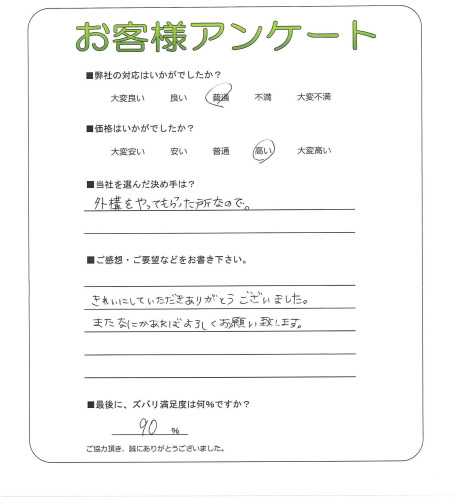 お客様アンケート
■弊社の対応はいかがでしたか？
大変良い 良い 普通 不満 大変不満
■価格はいかがでしたか？
大変安い 安い 普通 高い 大変高い
■当社を選んだ決め手は？
外構をやってもらった所なので。
■ご感想・ご要望などをお書き下さい。
きれいにしていただきありがとうございました。
またなにかあればよろしくお願い致します。
■最後に、ズバリ満足度は何%ですか？
90 %
ご協力頂き、誠にありがとうございました。